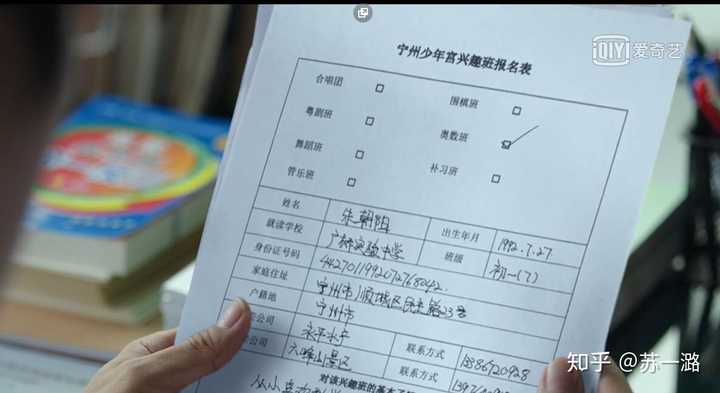 iQIYI 爱奇艺
宁州少年宫兴趣班报名表
合唱团 围棋班
粤剧班 奥数班
舞蹈班 补习班
管乐班
姓名 朱朝阳 出生年月 1992.7.27
就读学校 实验中学 班级 初一(7)
身份证号码
家庭住址 宁州市顺城区民主路23号
户籍地 宁州市
公司 永平水产 联系方式
公司 六峰山景区 联系方式
对该兴趣班的基本了
从小
知乎 @苏一潞